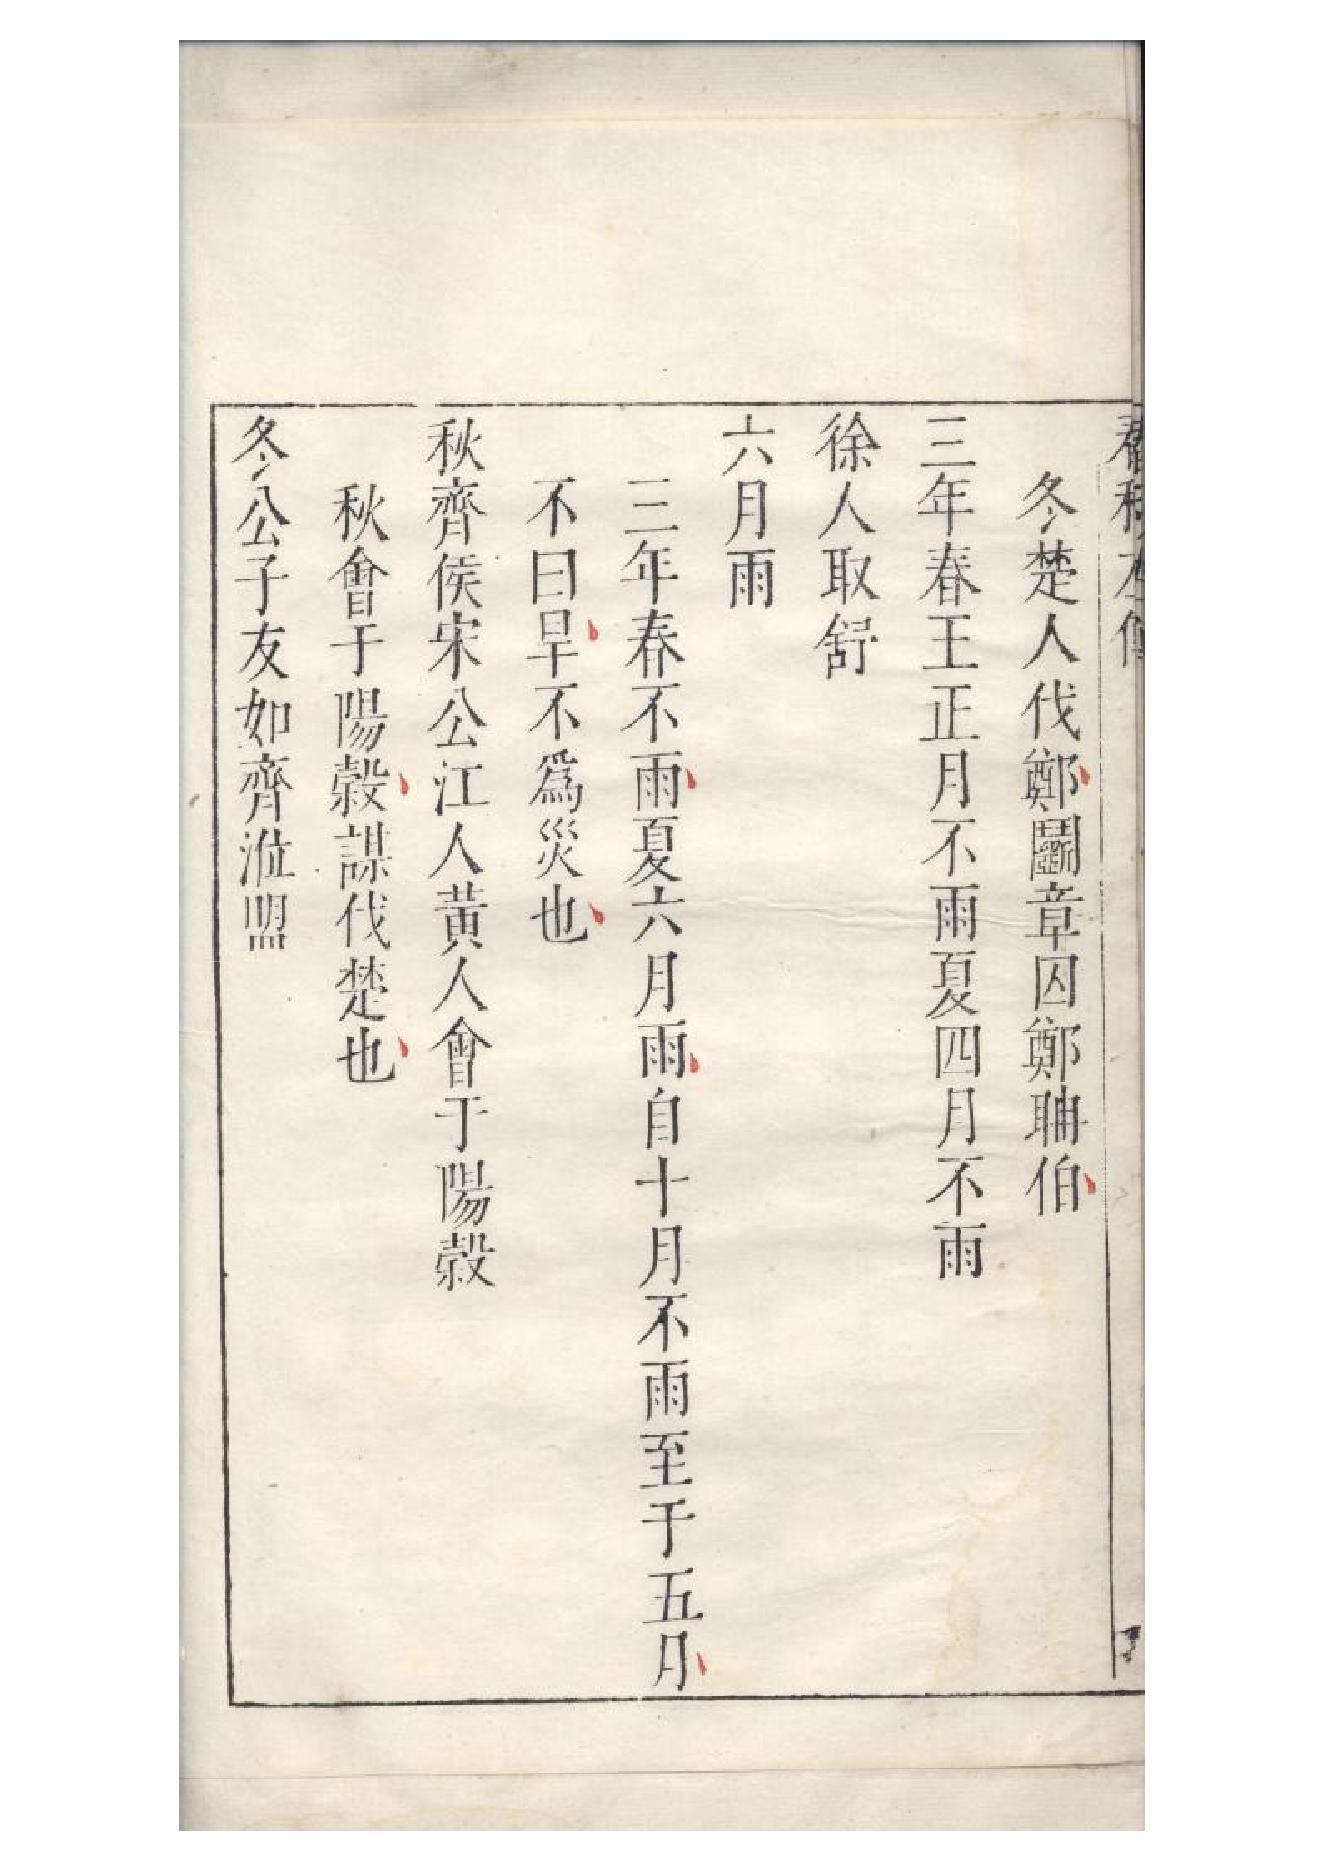 春秋左傳
冬楚人伐鄭鬭章囚鄭聃伯
三年春王正月不雨夏四月不雨
徐人取舒
六月雨
三年春不雨夏六月雨自十月不雨至于五月
不曰旱不為災也
秋齊侯宋公江人黃人會于陽穀
秋會于陽穀謀伐楚也
冬公子友如齊涖盟